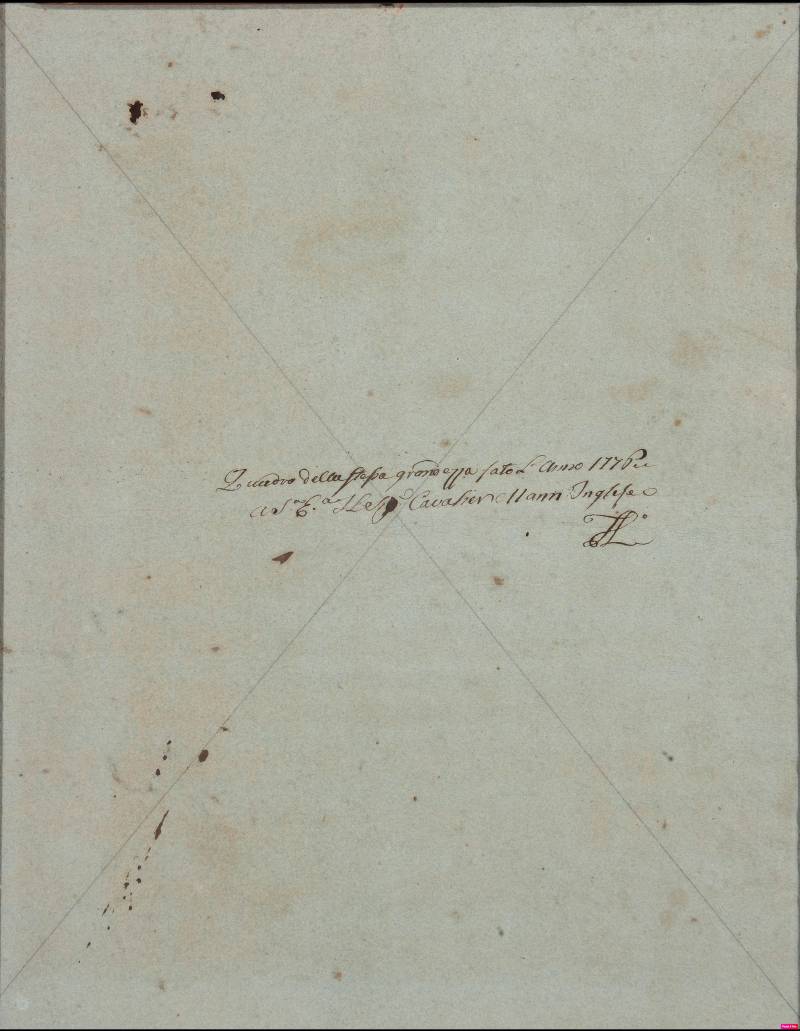 Quadro della stessa grandezza fato L'Anno 1776
a S.a E.a Il Cavalier Mann Inglese